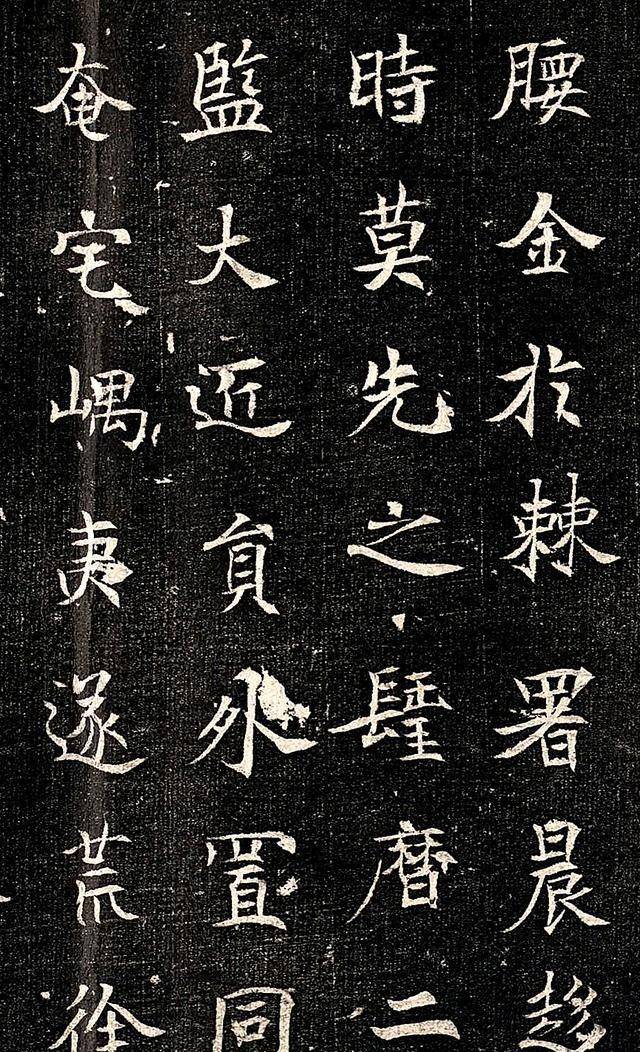 腰金於棘署晨趍
時莫先之肆曆二
監大近負外置同
奄宅嵎夷遂荒徐